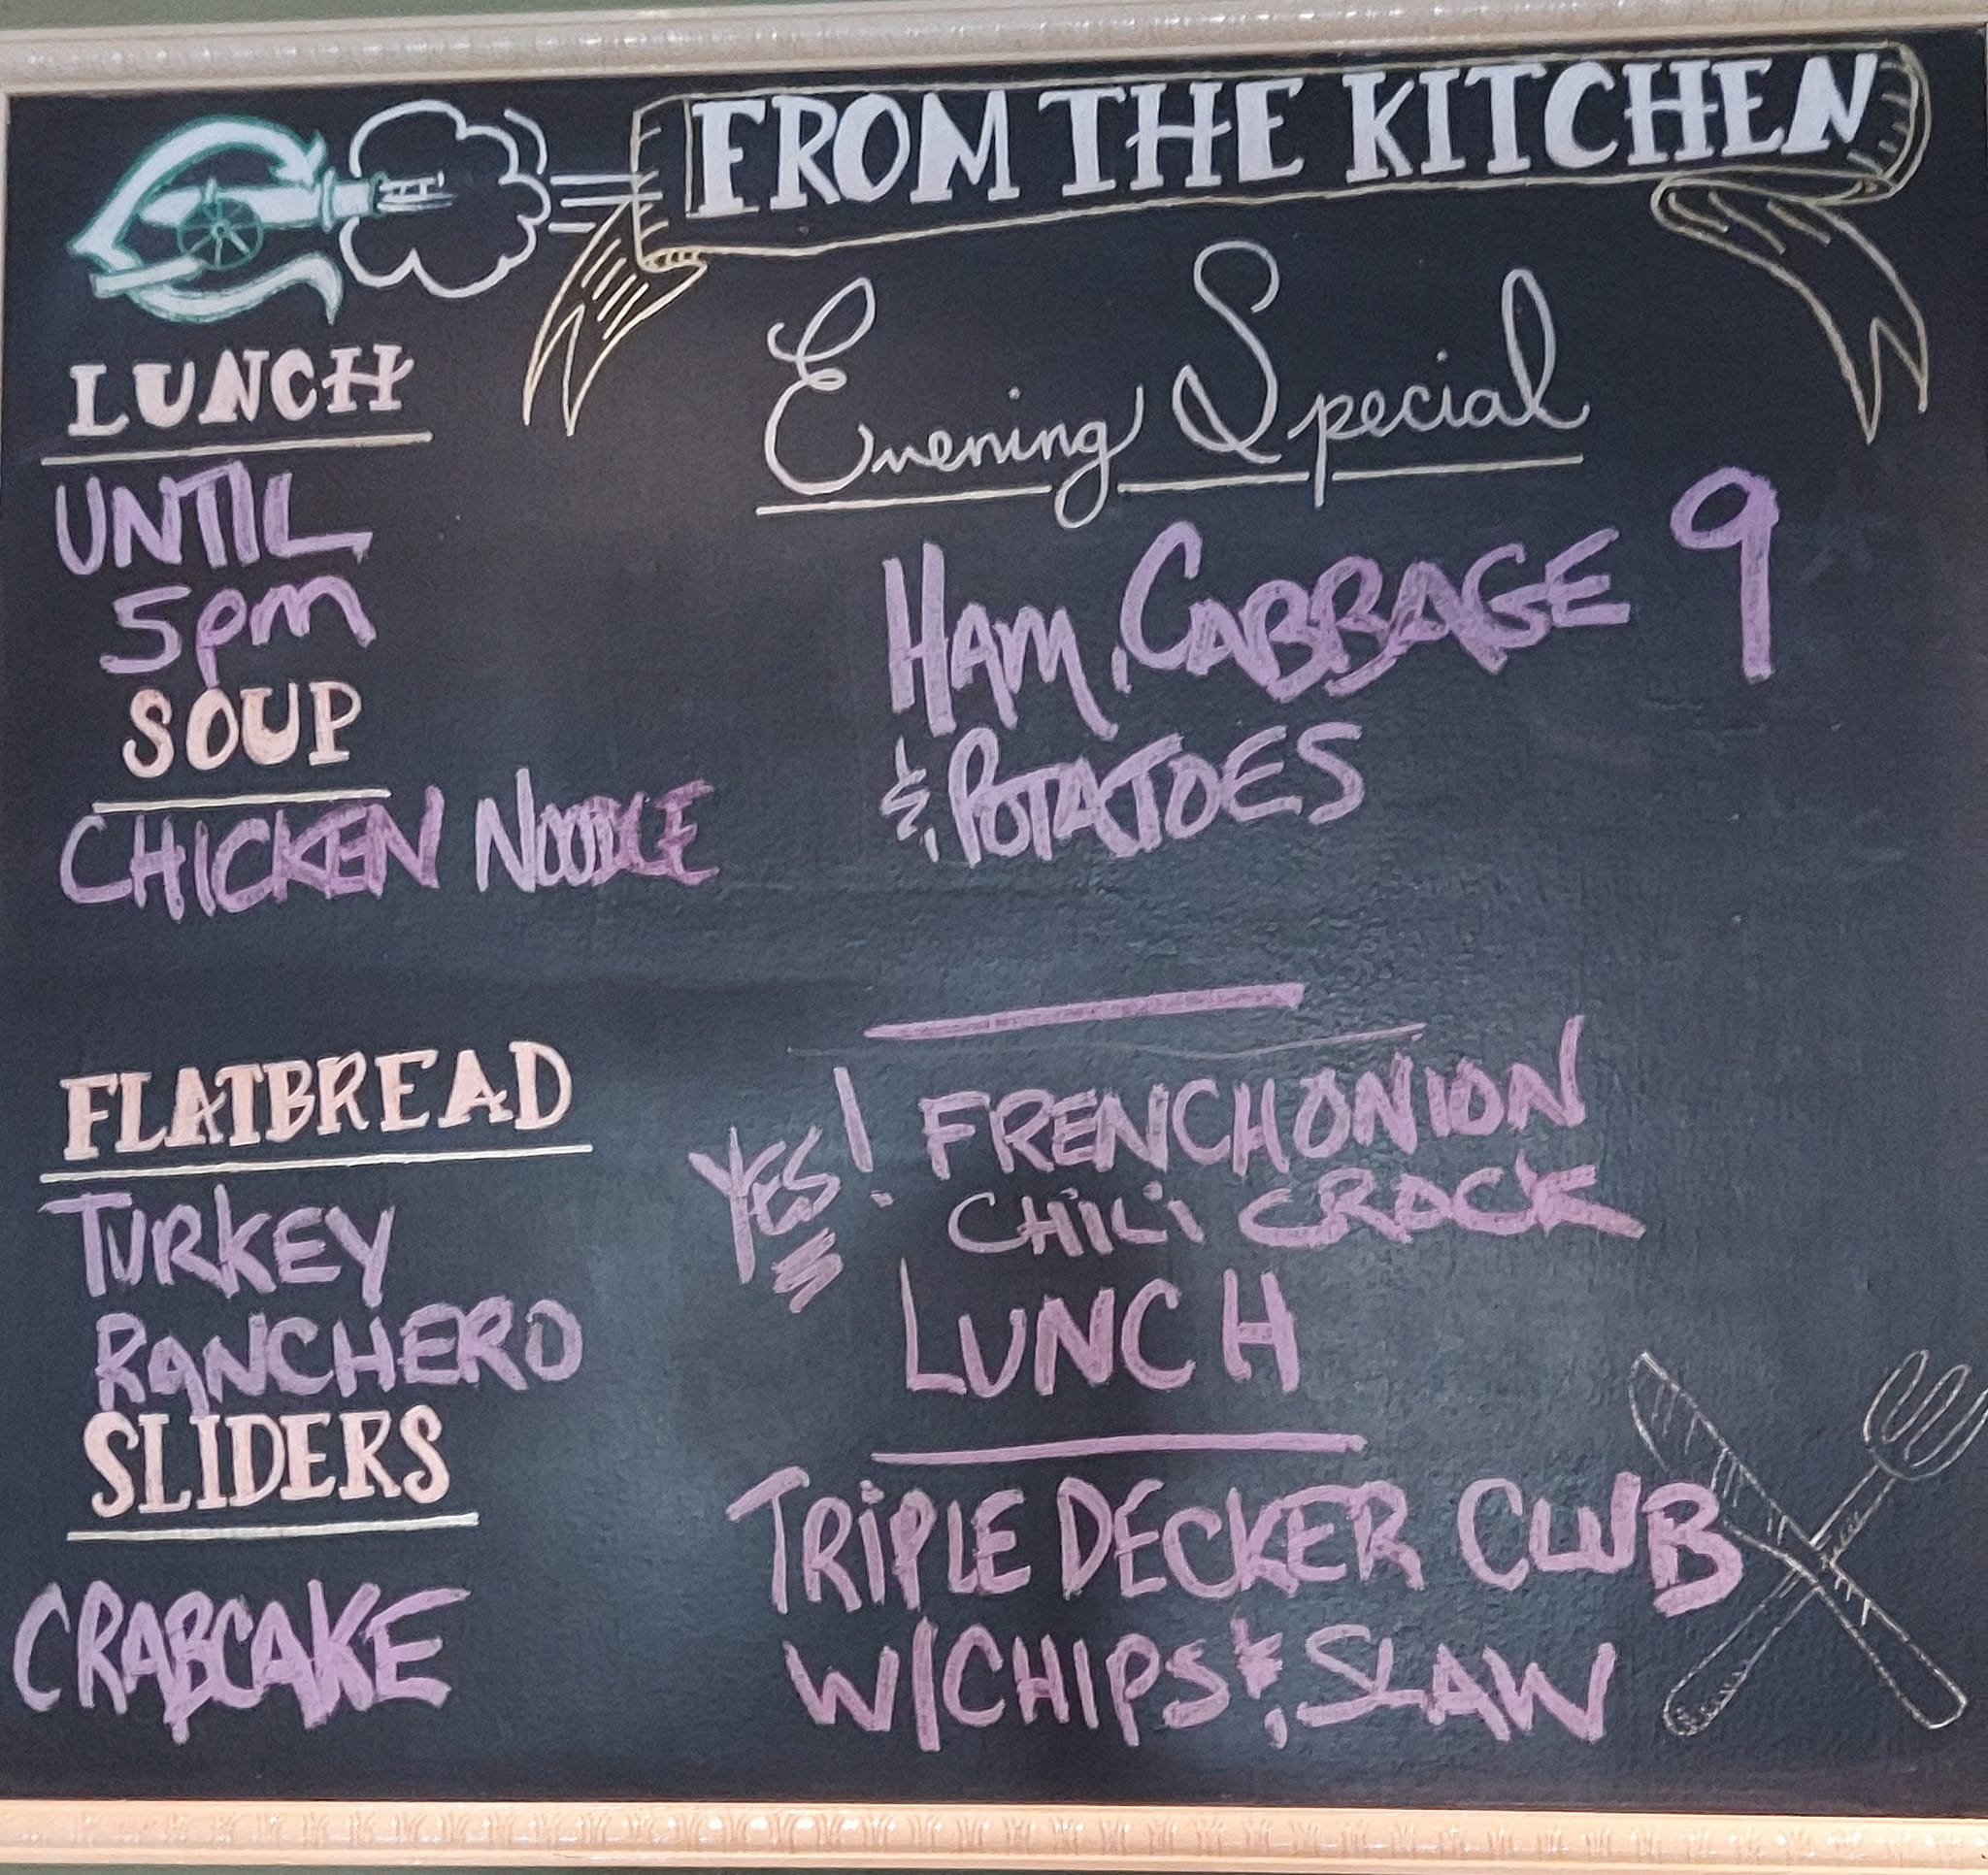 FROM THE KITCHEN
LUNCH
UNTIL
5pm
SOUP
CHICKEN NOODLE
FLATBREAD
TURKEY
RANCHERO
SLIDERS
CRABCAKE
Evening Special
HAM, CABBAGE 9
& POTATOES
YES! FRENCH ONION
CHILI CROCK
LUNCH
TRIPLE DECKER CLUB
W/CHIPS & SLAW